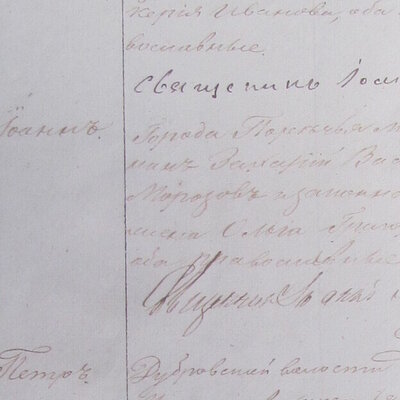 керія Иванова, оба
вославные.
Священникъ Іоан
Іоаннъ. Города Порѣчья М
Захарій Вас
Морозовъ и законна
жена Ольга Григо
оба православные
Священникъ Іоаннъ
Петръ. Дубровской волости